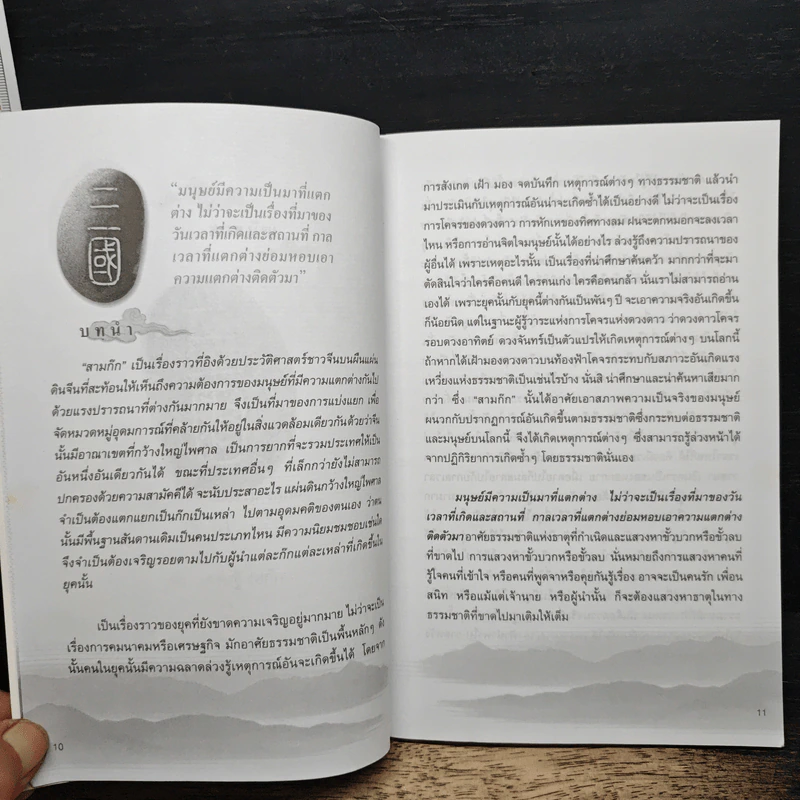 三
國
"มนุษย์มีความเป็นมาที่แตก
ต่าง ไม่ว่าจะเป็นเรื่องที่มาของ
วันเวลาที่เกิดและสถานที่ กาล
เวลาที่แตกต่างย่อมหอบเอา
ความแตกต่างติดตัวมา"
บทนำ
"สามก๊ก" เป็นเรื่องราวที่อิงด้วยประวัติศาสตร์ชาวจีนบนผืนแผ่น
ดินจีนที่สะท้อนให้เห็นถึงความต้องการของมนุษย์ที่มีความแตกต่างกันไป
ด้วยแรงปรารถนาที่ต่างกันมากมาย จึงเป็นที่มาของการแบ่งแยก เพื่อ
จัดหมวดหมู่อุดมการณ์ที่คล้ายกันให้อยู่ในสิ่งแวดล้อมเดียวกันด้วยว่าจีน
นั้นมีอาณาเขตที่กว้างใหญ่ไพศาล เป็นการยากที่จะรวมประเทศให้เป็น
อันหนึ่งอันเดียวกันได้ ขณะที่ประเทศอื่นๆ ที่เล็กกว่ายังไม่สามารถ
ปกครองด้วยความสามัคคีได้ จะนับประสาอะไร แผ่นดินกว้างใหญ่ไพศาล
จำเป็นต้องแตกแยกเป็นก๊กเป็นเหล่า ไปตามอุดมคติของตนเอง ว่าตน
นั้นมีพื้นฐานสันดานเดิมเป็นคนประเภทไหน มีความนิยมชมชอบเช่นใด
จึงจำเป็นต้องเจริญรอยตามไปกับผู้นำแต่ละก๊กแต่ละเหล่าที่เกิดขึ้นใน
ยุคนั้น
เป็นเรื่องราวของยุคที่ยังขาดความเจริญอยู่มากมาย ไม่ว่าจะเป็น
เรื่องการคมนาคมหรือเศรษฐกิจ มักอาศัยธรรมชาติเป็นพื้นหลักๆ ดัง
นั้นคนในยุคนั้นมีความฉลาดล่วงรู้เหตุการณ์อันจะเกิดขึ้นได้ โดยจาก
10
การสังเกต เฝ้า มอง จดบันทึก เหตุการณ์ต่างๆ ทางธรรมชาติ แล้วนำ
มาประเมินกับเหตุการณ์อันน่าจะเกิดซ้ำได้เป็นอย่างดี ไม่ว่าจะเป็นเรื่อง
การโคจรของดวงดาว การหักเหของทิศทางลม ฝนจะตกหมอกจะลงเวลา
ไหน หรือการอ่านจิตใจมนุษย์นั้นได้อย่างไร ล่วงรู้ถึงความปรารถนาของ
ผู้อื่นได้ เพราะเหตุอะไรนั้น เป็นเรื่องที่น่าศึกษาค้นคว้า มากกว่าที่จะมา
ตัดสินใจว่าใครคือคนดี ใครคนเก่ง ใครคือคนกล้า นั่นเราไม่สามารถอ่าน
เองได้ เพราะยุคนั้นกับยุคนี้ต่างกันเป็นพันๆ ปี จะเอาความจริงอันเกิดขึ้น
ก็น้อยนิด แต่ในฐานะผู้รู้วาระแห่งการโคจรแห่งดวงดาว ว่าดวงดาวโคจร
รอบดวงอาทิตย์ ดวงจันทร์เป็นตัวแปรให้เกิดเหตุการณ์ต่างๆ บนโลกนี้
ถ้าหากได้เฝ้ามองดวงดาวบนท้องฟ้าโคจรกระทบกับสภาวะอันเกิดแรง
เหวี่ยงแห่งธรรมชาติเป็นเช่นไรบ้าง นั่นสิ น่าศึกษาและน่าค้นหาเสียมาก
กว่า ซึ่ง "สามก๊ก" นั้นได้อาศัยเอาสภาพความเป็นจริงของมนุษย์
ผนวกกับปรากฏการณ์อันเกิดขึ้นตามธรรมชาติซึ่งกระทบต่อธรรมชาติ
และมนุษย์บนโลกนี้ จึงได้เกิดเหตุการณ์ต่างๆ ซึ่งสามารถรู้ล่วงหน้าได้
จากปฏิกิริยาการเกิดซ้ำๆ โดยธรรมชาตินั่นเอง
มนุษย์มีความเป็นมาที่แตกต่าง ไม่ว่าจะเป็นเรื่องที่มาของวัน
เวลาที่เกิดและสถานที่ กาลเวลาที่แตกต่างย่อมหอบเอาความแตกต่าง
ติดตัวมา อาศัยธรรมชาติแห่งธาตุที่กำเนิดและแสวงหาขั้วบวกหรือขั้วลบ
ที่ขาดไป การแสวงหาขั้วบวกหรือขั้วลบ นั่นหมายถึงการแสวงหาคนที่
รู้ใจคนที่เข้าใจ หรือคนที่พูดจาหรือคุยกันรู้เรื่อง อาจจะเป็นคนรัก เพื่อน
สนิท หรือแม้แต่เจ้านาย หรือผู้นำนั้น ก็จะต้องแสวงหาธาตุในทาง
ธรรมชาติที่ขาดไปมาเติมให้เต็ม
11